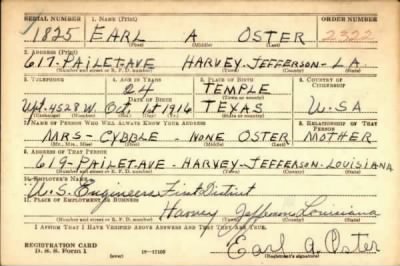 SERIAL NUMBER 1. NAME (Print) ORDER NUMBER
1825 EARL A OSTER 2322
(First) (Middle) (Last)
2. ADDRESS (Print)
617-PAILET-AVE HARVEY-JEFFERSON-LA.
(Number and street or R. F. D. number) (Town) (County) (State)
3. TELEPHONE 4. AGE IN YEARS 5. PLACE OF BIRTH 6. COUNTRY OF CITIZENSHIP
24 TEMPLE
DATE OF BIRTH (Town or county)
Upt. 4528 W. Oct. 1st 1916 TEXAS U-SA
7. NAME OF PERSON WHO WILL ALWAYS KNOW YOUR ADDRESS 8. RELATIONSHIP OF THAT PERSON
MRS- CYBBLE NONE OSTER MOTHER
(Mr., Mrs., Miss) (First) (Middle) (Last)
9. ADDRESS OF THAT PERSON
619-PAILET-AVE-HARVEY-JEFFERSON-LOUISIANA
(Number and street or R. F. D. number) (Town) (County) (State)
10. EMPLOYER'S NAME
U.S. Engineers First District
11. PLACE OF EMPLOYMENT OR BUSINESS
Harvey Jefferson Louisiana
(Number and street or R. F. D. number) (Town) (County) (State)
I AFFIRM THAT I HAVE VERIFIED ABOVE ANSWERS AND THAT THEY ARE TRUE.
REGISTRATION CARD
D. S. S. Form 1 (over) Earl A. Oster
(Registrant's signature)